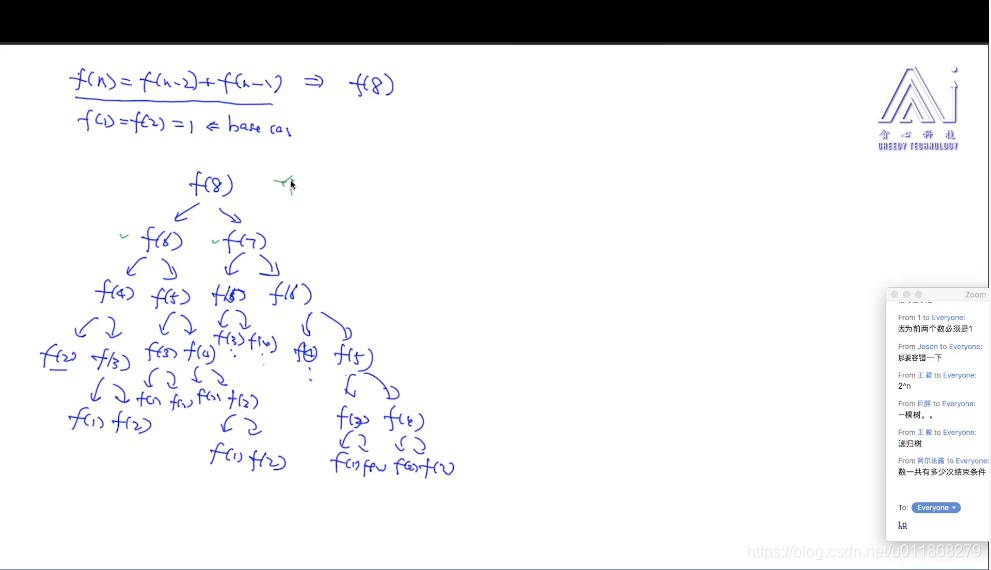 f(n) = f(n-2) + f(n-1) ⇒ f(8)
f(1) = f(2) = 1 ← base cas
Ai
贪心科技
GREEDY TECHNOLOGY
f(8)
f(6) f(7)
f(4) f(5) f(5) f(6)
f(3) f(4)
f(2) f(3) f(3) f(4) f(4) f(5)
f(1) f(2)
f(1) f(2) f(3)
f(1) f(2)
Zoom
From 1 to Everyone:
因为前两个数必须是1
From Joson to Everyone:
那要容错一下
From 王 to Everyone:
2^n
From 巨胖 to Everyone:
一棵树。。
From 王 to Everyone:
递归树
From 阿尔法酱 to Everyone:
数一共有多少次结束条件
To: Everyone
Lo
https://blog.csdn.net/u011868279